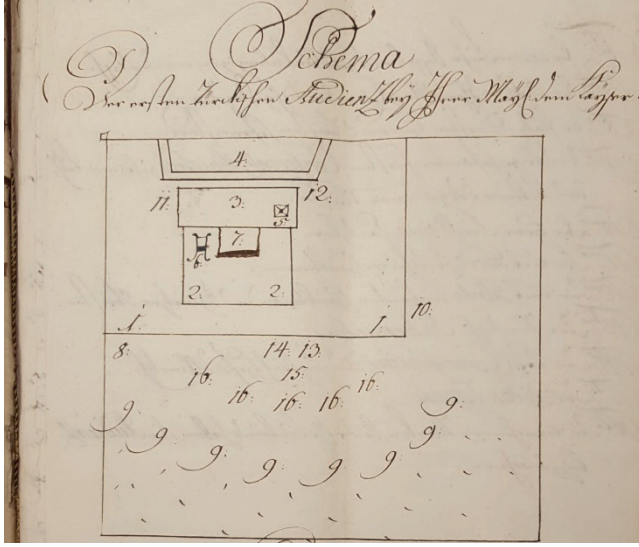 Schema
Der ersten türckischen Audienz bey Ihrer Mayt. dem Kayser
4:
11: 3: 12:
5:
7:
6:
2: 2:
1: 1: 10:
8: 14: 13:
15:
16: 16: 16: 16: 16:
9: 9:
9: 9:
9: 9: 9: 9: